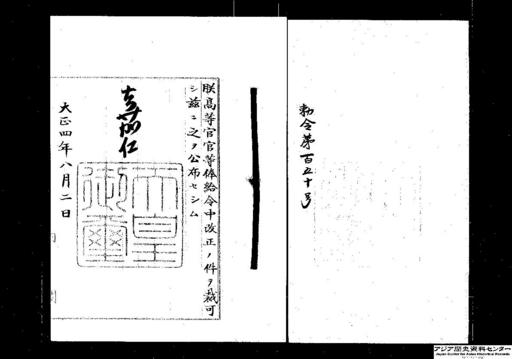 勅令第百五十号
朕高等官官等俸給令中改正ノ件ヲ裁可
シ茲ニ之ヲ公布セシム
嘉仁
天皇
御璽
大正四年八月二日
アジア歴史資料センター
Japan Center for Asian Historical Records